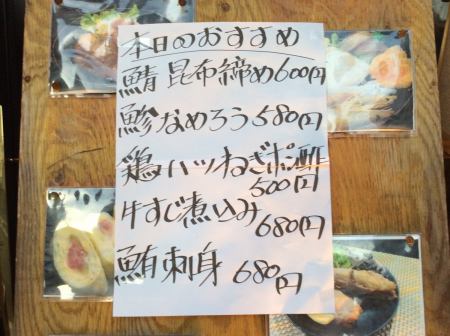 本日のおすすめ
鯖昆布締め600円
鯵なめろう580円
鶏ハツねぎポン酢
500円
牛すじ煮込み
680円
鮪刺身 680円